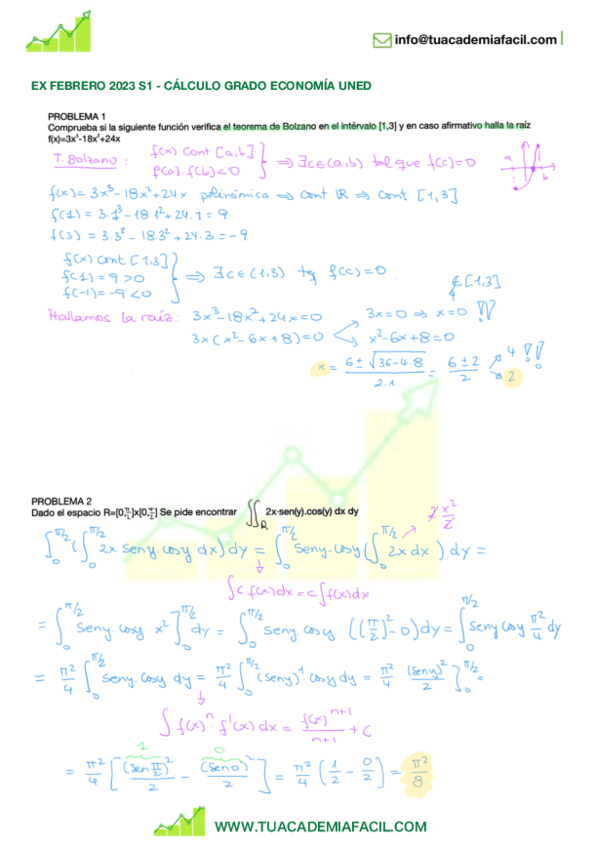 info@tuacademiafacil.com
EX FEBRERO 2023 S1 - CÁLCULO GRADO ECONOMÍA UNED
PROBLEMA 1
Comprueba si la siguiente función verifica el teorema de Bolzano en el intérvalo [1,3] y en caso afirmativo halla la raíz
f(x)=3x³-18x²+24x
T. Bolzano: f(x) cont [a,b] f(a).f(b)<0 } ⇒ ∃c∈(a,b) tal que f(c)=0
a b
f(x)= 3x³-18x²+24x polinómica ⇒ cont ℝ ⇒ cont [1,3]
f(1) = 3·1³-18·1²+24·1 = 9
f(3) = 3·3³-18·3²+24·3 = -9
f(x) cont [1,3]
f(1) = 9 >0 } ⇒ ∃c∈(1,3) tq f(c)=0.
f(-1)= -9 <0
∉[1,3]
Hallamos la raíz: 3x³-18x²+24x=0 3x=0 ⇒ x=0 !!
3x(x²-6x+8)=0 x²-6x+8=0
x = (6±√(36-4·8))/(2·1) = (6±2)/2 4 !! 2
PROBLEMA 2
Dado el espacio R=[0,π/2]x[0,π/2] Se pide encontrar ∬R 2x·sen(y).cos(y) dx dy
2x²/2
∫₀^π/2 (∫₀^π/2 2x seny cosy dx) dy = ∫₀^π/2 seny.cosy (∫₀^π/2 2x dx) dy =
∫c f(x)dx = c∫f(x)dx
= ∫₀^π/2 seny.cosy x²]₀^π/2 dy = ∫₀^π/2 seny.cosy ((π/2)²-0)dy = ∫₀^π/2 seny cosy π²/4 dy
= π²/4 ∫₀^π/2 seny.cosy dy = π²/4 ∫₀^π/2 (seny)¹.cosy dy = π²/4 (seny)²/2]₀^π/2 =
∫f(x)ⁿ·f'(x)dx = f(x)ⁿ⁺¹/(n+1) + C
1 0
= π²/4 [(sen π/2)²/2 - (sen0)²/2] = π²/4 (1/2 - 0/2) = π²/8
WWW.TUACADEMIAFACIL.COM